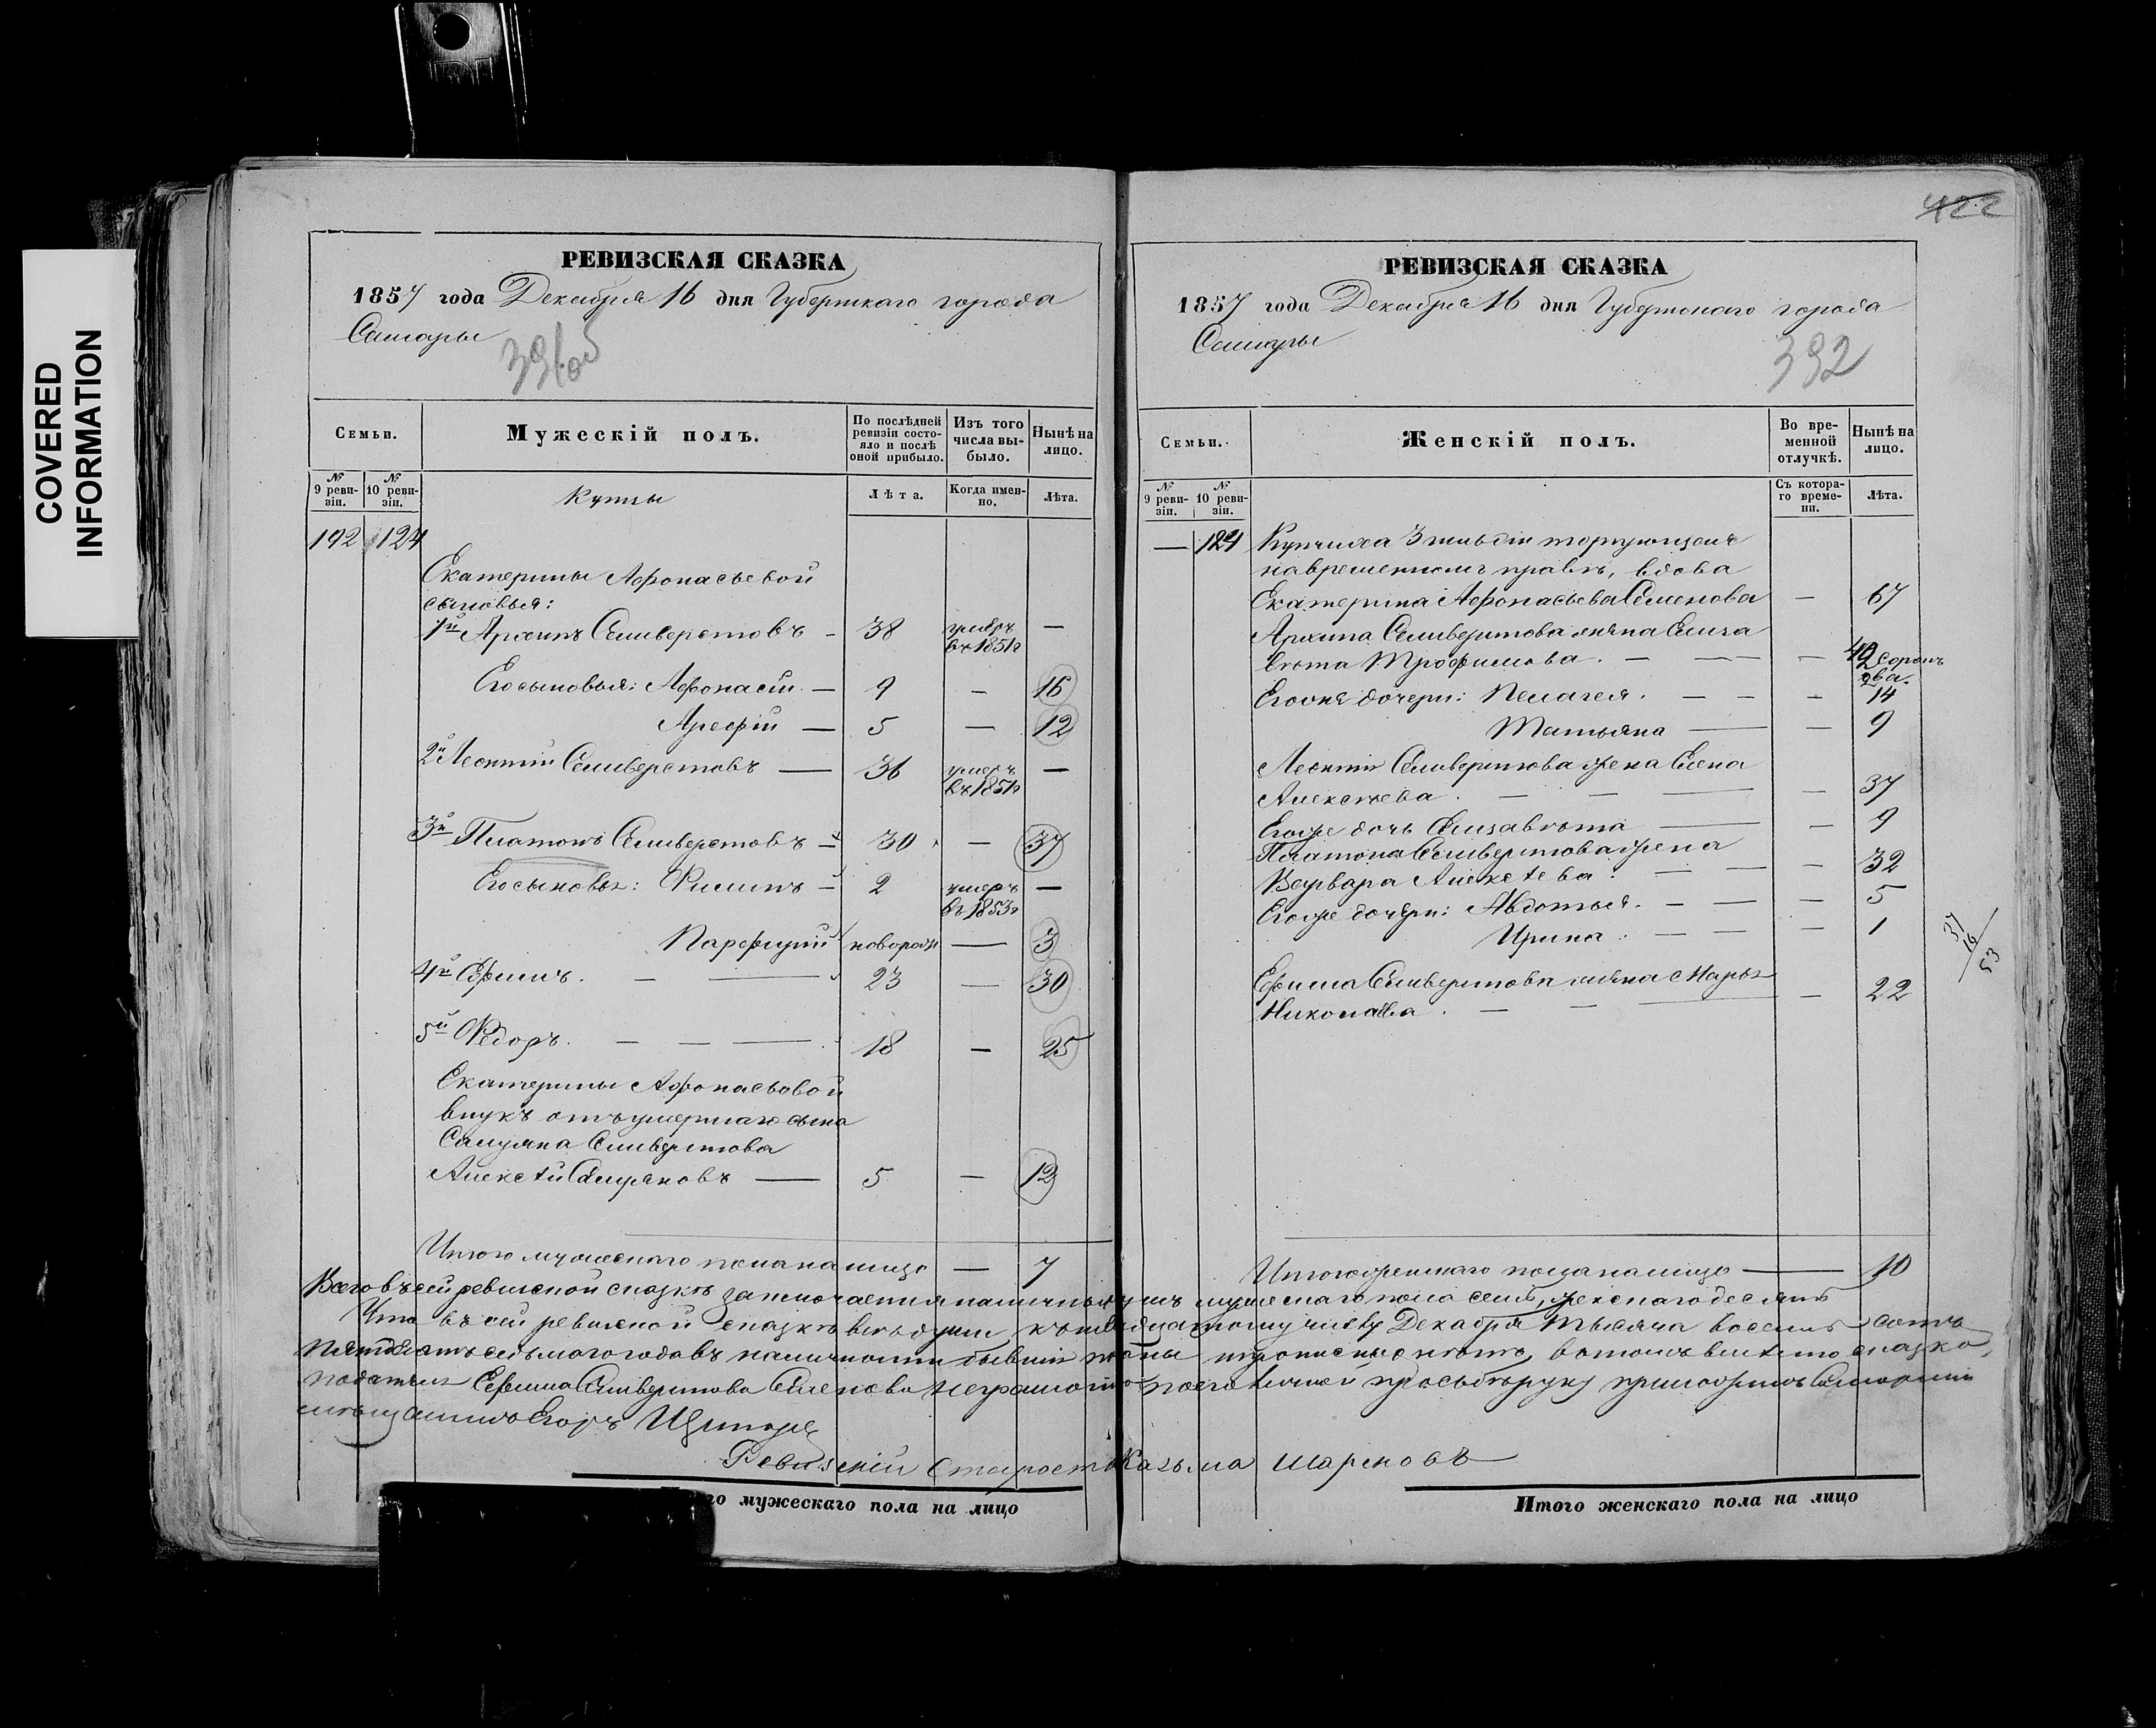 COVERED
INFORMATION
РЕВИЗСКАЯ СКАЗКА
1857 года Декабря 16 дня Губернскаго города
Самары
391об
Семьи.
Мужескій полъ.
По послѣдней ревизіи состояло и послѣ оной прибыло.
Изъ того числа выбыло.
Нынѣ на лицо.
№ 9 ревизіи.
№ 10 ревизіи.
Купцы
Лѣта.
Когда именно.
Лѣта.
192 124
Екатерины Афонасьевой
сыновья:
1й Архипъ Селиверстовъ - 38 умеръ въ 1851г —
Его сыновья: Афонасій — 9 — 16
Арефій — 5 — 12
2й Леонтій Селиверстовъ — 36 умеръ въ 1851г —
3й Платонъ Селиверстовъ — 30 — 37
Его сыновья: Филипъ — 2 умеръ въ 1853г —
Парфирій новорож — 3
4й Ефимъ. — — 23 — 30
5й Федоръ. — — — 18 — 25
Екатерины Афонасьевой
внукъ отъ умершаго сына
Самуяна Селиверстова
Алексѣй Самуяновъ — 5 — 12
Итого мужескаго пола на лицо — 7
422
РЕВИЗСКАЯ СКАЗКА
1857 года Декабря 16 дня Губернскаго города
Самары
392
Семьи.
Женскій полъ.
Во временной отлучкѣ.
Нынѣ на лицо.
№ 9 ревизіи.
№ 10 ревизіи.
Съ котораго времени.
Лѣта.
— 124 Купчиха 3 гильдіи торгующая
на временномъ правѣ, вдова
Екатерина Афонасьева Семенова — 67
Архипа Селиверстова жена Елиза
вета Трофимова. — — — 42 сорокъ два.
Его же дочери: Пелагея. — — — 14
Татьяна — — 9
Леонтія Селиверстова жена Елена
Алексѣева. — — — — 37
Его же дочь Елизавета — — 9
Платона Селиверстова жена
Варвара Алексѣева. — — — 32
Его же дочери: Авдотья. — — — 5
Ирина: — — — 1
Ефима Селиверстова жена Марья
Николаева. — — — — 22
37
16
53
Итого женскаго пола на лицо — 10
Всего въ сей ревизской сказкѣ заключается наличныхъ душъ мужескаго пола семь, женскаго десять
Что въ сей ревизской сказкѣ всѣ души, къ шестнадцатому числу Декабря тысяча восемь сотъ
пятдесятъ седьмаго года въ наличности бывшія показаны и прописныхъ нѣтъ, въ томъ вмѣсто сказко,
подателя Ефима Селиверстова Семенова неграмотнаго по его личной прозьбѣ руку приложилъ Самарскій
мѣщанинъ Егоръ
Ревизскій Староста Козьма Шарсновъ
го мужескаго пола на лицо
Итого женскаго пола на лицо